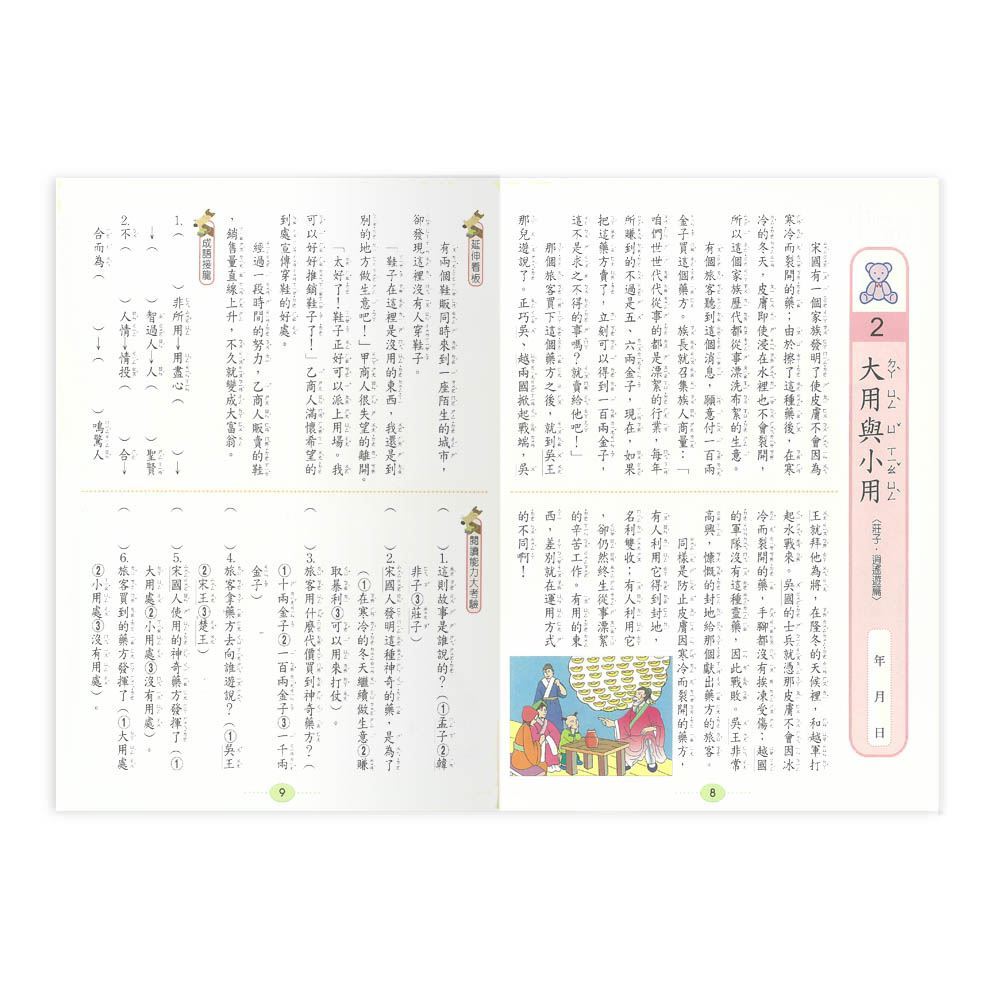 2
大用與小用
ㄉㄚˋ ㄩㄥˋ ㄩˇ ㄒㄧㄠˇ ㄩㄥˋ
〈莊子．逍遙遊篇〉
年 月 日
宋國有一個家族發明了使皮膚不會因為
寒冷而裂開的藥；由於擦了這種藥後，在寒
冷的冬天，皮膚即使浸在水裡也不會裂開，
所以這個家族歷代都從事漂洗布絮的生意。
有個旅客聽到這個消息，願意付一百兩
金子買這個藥方。族長就召集族人商量：「
咱們世世代代從事的都是漂絮的行業，每年
所賺到的不過是五、六兩金子，現在，如果
把這藥方賣了，立刻可以得到一百兩金子，
這不是求之不得的事嗎？就賣給他吧！」
那個旅客買下這個藥方之後，就到吳王
那兒遊說了。正巧吳、越兩國掀起戰端，吳
王就拜他為將，在隆冬的天候裡，和越軍打
起水戰來。吳國的士兵就憑那皮膚不會因冰
冷而裂開的藥，手腳都沒有挨凍受傷；越國
的軍隊沒有這種靈藥，因此戰敗。吳王非常
高興，慷慨的封地給那個獻出藥方的旅客。
同樣是防止皮膚因寒冷而裂開的藥方，
有人利用它得到封地，
名利雙收；有人利用它
，卻仍然終生從事漂絮
的辛苦工作。有用的東
西，差別就在運用方式
的不同啊！
8
延伸看板
有兩個鞋販同時來到一座陌生的城市，
卻發現這裡沒有人穿鞋子。
「鞋子在這裡是沒用的東西，我還是到
別的地方做生意吧！」甲商人很失望的離開。
「太好了！鞋子正好可以派上用場。我
可以好好推銷鞋子了！」乙商人滿懷希望的
到處宣傳穿鞋的好處。
經過一段時間的努力，乙商人販賣的鞋
，銷售量直線上升，不久就變成大富翁。
成語接龍
1.（　）非所用→用盡心（　）→
→（　）智過人→人（　）聖賢
2.不（　）人情→情投（　）合→
合而為（　）→（　）鳴驚人
閱讀能力大考驗
（　）1.這則故事是誰說的？（①孟子②韓
非子③莊子）
（　）2.宋國人發明這種神奇的藥，是為了
（①在寒冷的冬天繼續做生意②賺
取暴利③可以用來打仗）。
（　）3.旅客用什麼代價買到神奇藥方？（
①十兩金子②一百兩金子③一千兩
金子）
（　）4.旅客拿藥方去向誰遊說？（①吳王
②宋王③楚王）
（　）5.宋國人使用的神奇藥方發揮了（①
大用處②小用處③沒有用處）。
（　）6.旅客買到的藥方發揮了（①大用處
②小用處③沒有用處）。
9